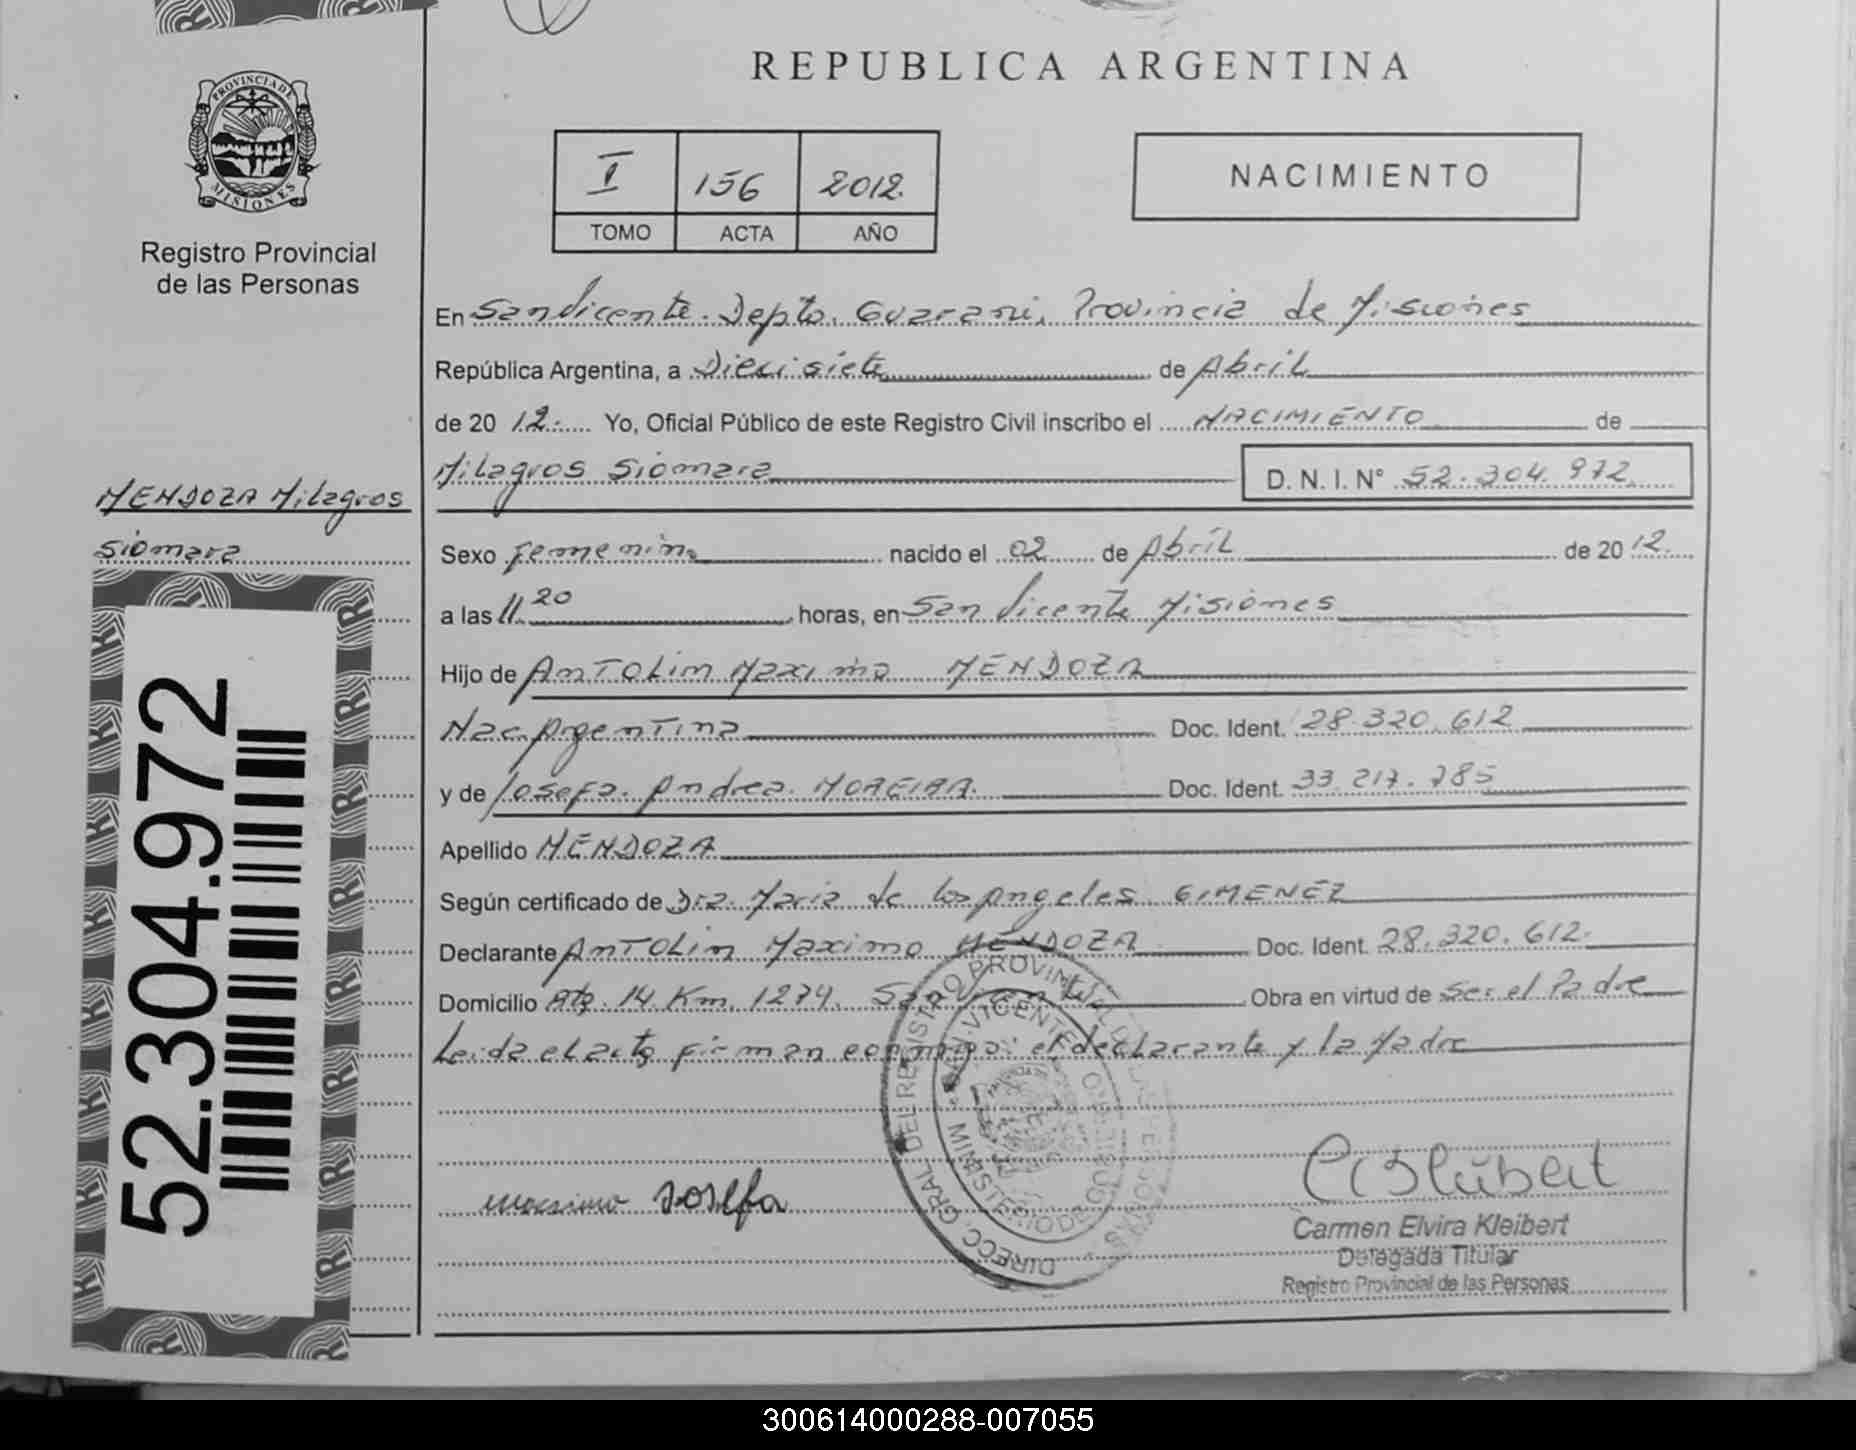 REPUBLICA ARGENTINA
PROVINCIA DE
MISIONES
Registro Provincial
de las Personas
I 156 2012.
TOMO ACTA AÑO
NACIMIENTO
En San Vicente. Depto. Guarani, Provincia de Misiones
República Argentina, a Diecisiete de Abril
de 20 12. Yo, Oficial Público de este Registro Civil inscribo el NACIMIENTO de
Milagros Siomara D. N. I. N° 52.304.972
MENDOZA Milagros
Siomara
Sexo Femenino nacido el 02 de Abril de 20 12.
a las 11.20 horas, en San Vicente Misiones
Hijo de Antolin Maximo MENDOZA
Nac. Argentina Doc. Ident. 28.320.612
y de Josefa Andrea MOREIRA. Doc. Ident. 33.217.785
Apellido MENDOZA
Según certificado de Dra. Maria de los Angeles GIMENEZ
Declarante Antolin Maximo MENDOZA Doc. Ident. 28.320.612.
Domicilio Rta. 14 Km. 1274. San Vicente Obra en virtud de Ser el Padre
Leida el acta firman conmigo: el declarante y la Madre
52.304.972
DIRECC. GRAL DEL REGISTRO PROVINCIAL DE LAS PERSONAS
SAN VICENTE
MINISTERIO DE
maximo Josefa
Carmen Elvira Kleibert
Delegada Titular
Registro Provincial de las Personas
300614000288-007055